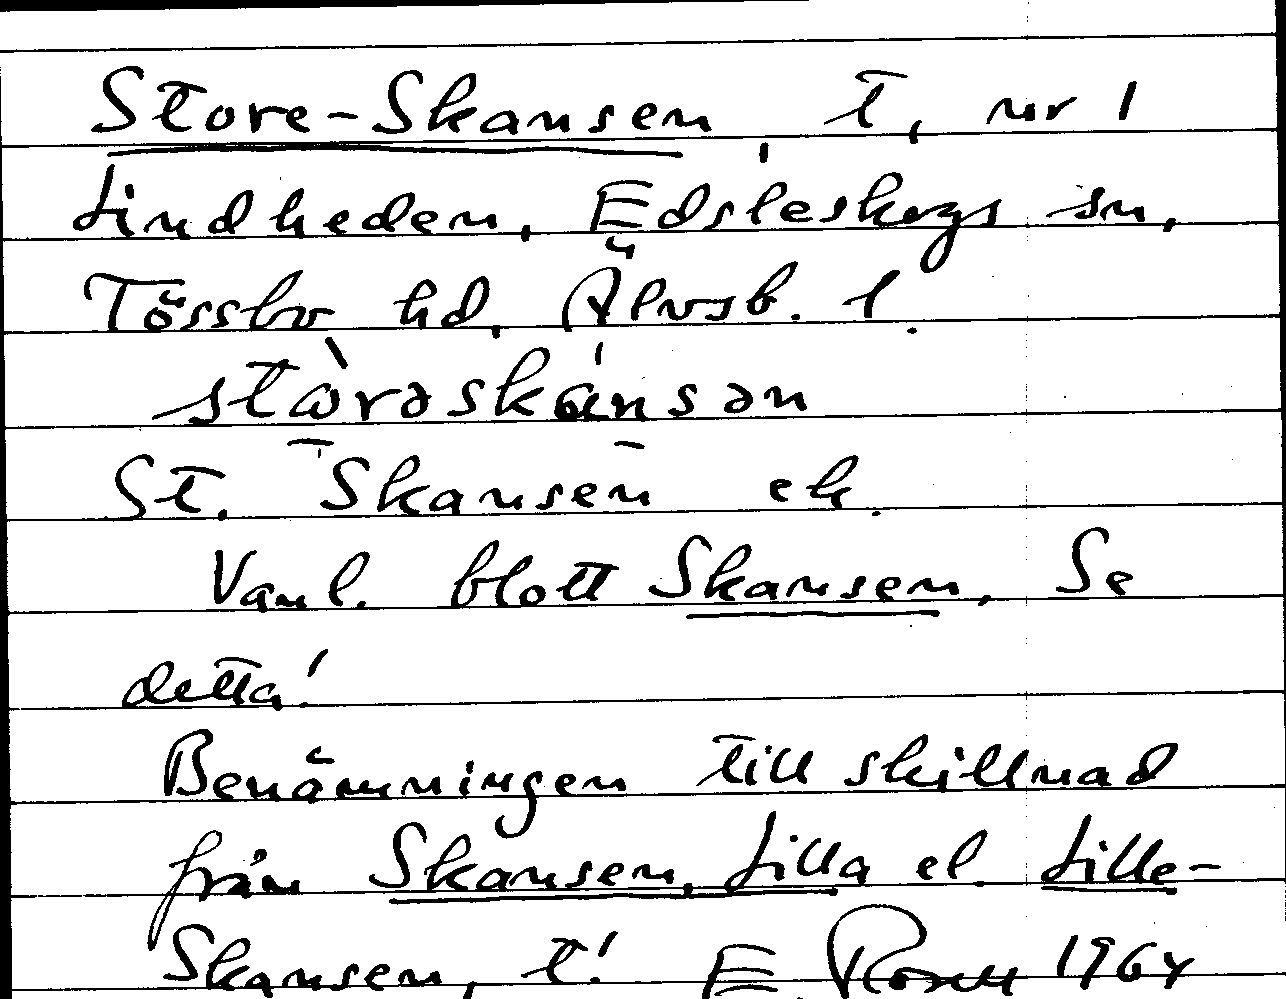 Store-Skansen, t, nr 1
Lindheden, Edsleskogs sn,
Tössbo hd, Älvsb. l.
stò̀rəskánsən
St. Skansen ek.
Vanl. blott Skansen. Se
detta!
Benämningen till skillnad
från Skansen, Lilla el. Lille-
Skansen, t! E 1964